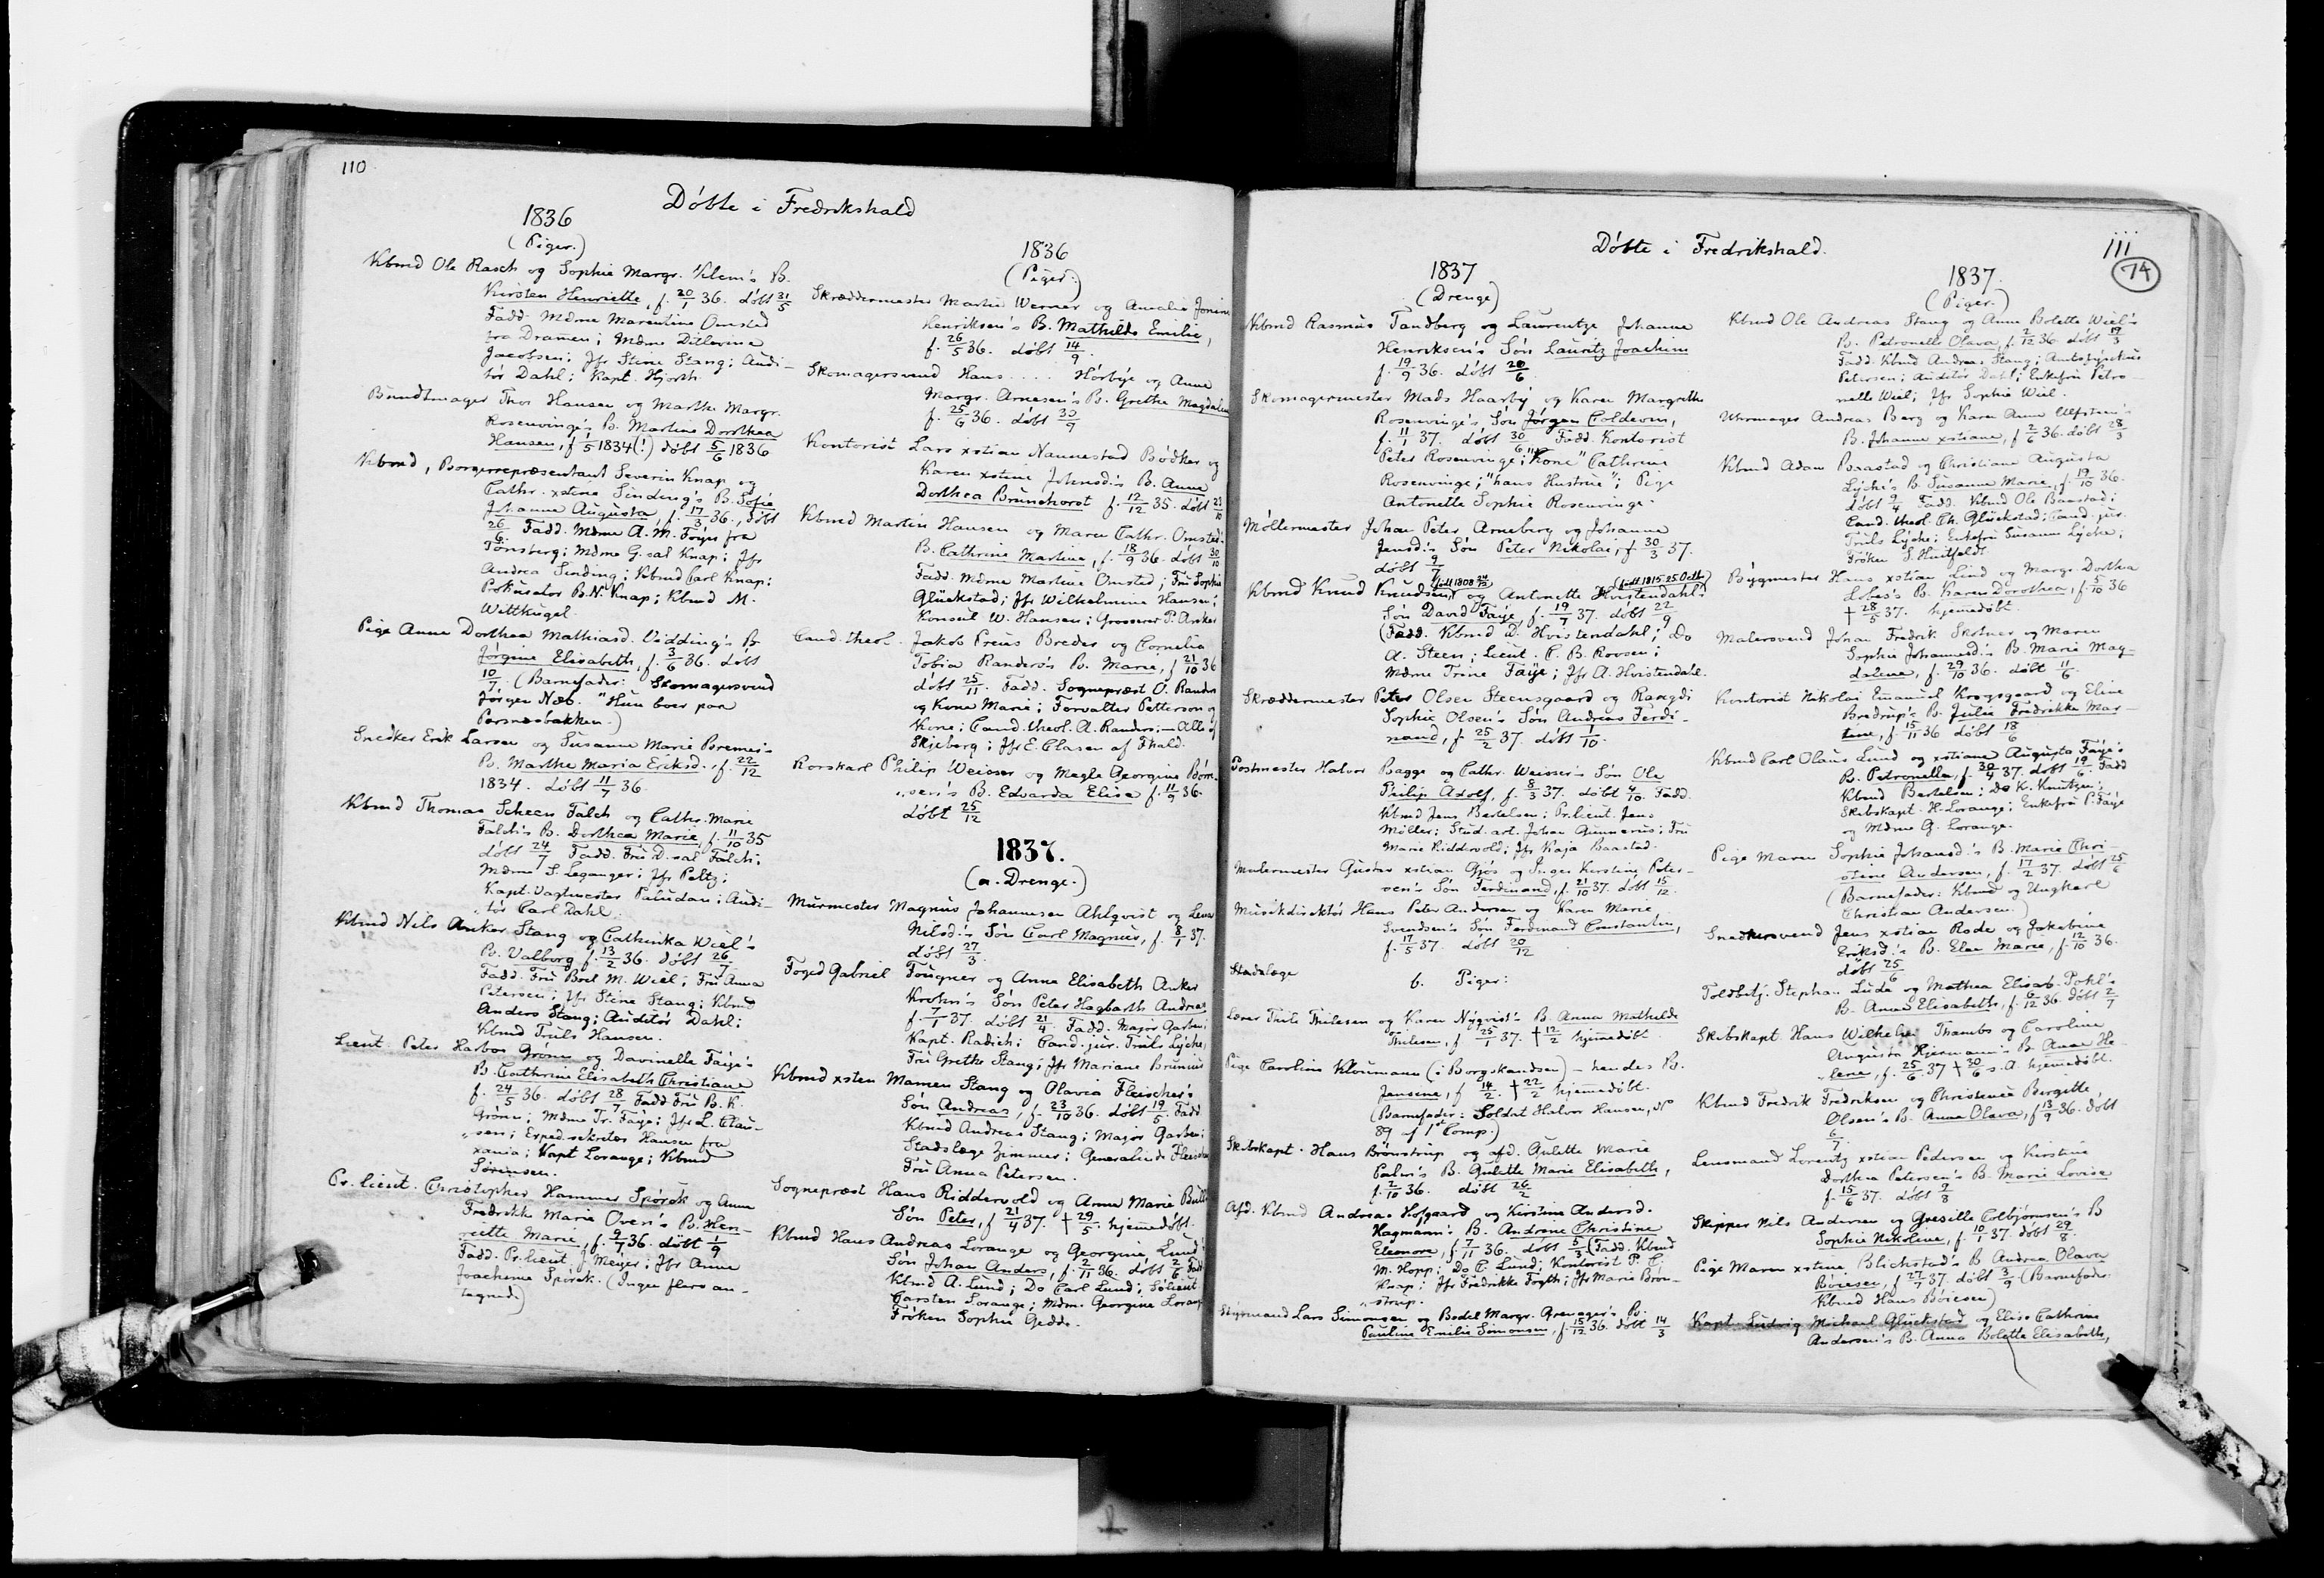 110
Döbte i Fredrikshald
1836
(Piger.)
Kbmd Ole Rasch og Sophie Margr. Klem's B.
Kirsten Henriette, f. 20/1 36. döbt 31/5
Fadd. Mdme Marentine Omsted
fra Dramen; Mdme Ditlevine
Jacobsen; Jfr Stine Stang; Audi-
tör Dahl; Kapt. Hjorth.
Bundtmager Thor Hansen og Marthe Margr.
Rosenvinge's B. Martine Dorthea
Hansen, f. 1/5 1834(!) döbt 5/6 1836
Kbmd, Borgerrepræsentant Severin Knap og
Cathr. xstine Sinding's B. Sofie
Johanne Augusta, f. 17/3 36., döbt
26/6. Fadd. Mdme A. M. Foyn fra
Tönsberg; Mdme G. sal Knap; Jfr
Andrea Sinding; Kbmd Carl Knap;
Prokurator B. N. Knap; Kbmd M.
Wittkugel.
Pige Anne Dorthea Mathiasd. Vidding's B
Jörgine Elisabeth, f. 3/6 36. döbt
10/7. (Barnefader: Skomagersvend
Jörgen Næs. "Hun boer paa
Pærsnesbakken.)
Snedker Erik Larsen og Susanne Marie Bremer's
B. Marthe Maria Eriksd., f. 22/12
1834. döbt 11/7 36.
Kbmd Thomas Scheen Falch og Cathr. Marie
Falch's B. Dorthea Marie, f. 11/10 35
döbt 24/7 Fadd. Fru D. sal Falch;
Mdme S. Leganger; Jfr Peltz;
Kapt. Vagtmester Paludan; Audi-
tör Carl Dahl.
Kbmd Nils Anker Stang og Cathinka Wiel's
B. Valborg f. 13/2 36. döbt 26/7.
Fadd. Fru Boel M. Wiel; Fru Anna
Petersen; Jfr Stine Stang; Kbmd
Anders Stang; Auditör Dahl;
Kbmd Truls Hansen.
Lieut. Peter Harboe Grönn og Davinelle Faye's
B. Cathrine Elisabeth Christiane
f. 24/5 36. döbt 28/7 Fadd. Fru B. K.
Grönn; Mdme Tr. Faye; Jfr L. Clau-
„sen; Exped. sekretær Hansen fra
xania; Kapt Lorange; Kbmd
Sörensen.
Pr. lieut. Christopher Hammer Spörck og Anne
Fredrikke Marie Oven's B. Hen-
riette Marie, f. 9/7 36. döbt 1/9
Fadd. Pr. lieut. J. Meyer; Jfr Anne
Joachime Spörck. (Ingen flere an-
tegnede)
1836
(Piger.)
Skræddermester Martin Werner og Amalie Jonine
Henriksen's B. Mathilde Emilie,
f. 26/5 36. döbt 14/9.
Skomagersvend Hans .... Hörbye og Anne
Margr. Arnesen's B. Grethe Magdalene
f. 25/6 36. döbt 30/9
Kontorist Lars xstian Nannestad Bödker og
Karen xstine Johnsd.'s B. Anne
Dorthea Brunchorst f. 12/12 35. döbt 23/10
Kbmd Martin Hansen og Maren Cathr. Omsted's
B. Cathrine Martine, f. 18/9 36. döbt 30/10
Fadd. Mdme Martine Omsted; Fru Sophie
Glückstad; Jfr Wilhelmine Hansen;
Konsul W. Hansen; Grosserer P. Anker
Cand. theol. Jakob Preus Breder og Cornelia
Tobia Randers's B. Marie, f. 21/10 36
döbt 25/11. Fadd. Sognepræst O. Randers
og Kone Marie; Forvalter Petterson og
Kone; Cand. theol. A. Randers; – Alle af
Skjeberg; Jfr E. Clasen af Fhald.
Rorskarl Philip Weisser og Megle Georgine Börre-
„sen's B. Edvarda Elise f. 11/9 36.
döbt 25/12
1837.
(a. Drenge.)
Murmester Magnus Johannesen Ahlqvist og Lena
Nilsd.'s Sön Carl Magnus, f. 8/1 37.
döbt 27/3.
Foged Gabriel Fougner og Anne Elisabeth Anker
Krohn's Sön Peter Hagbarth Andreas
f. 7/1 37. döbt 21/4 Fadd. Major Garben;
Kapt. Radich; Cand. jur. Truls Lyche;
Fru Grethe Stang; Jfr Mariane Brunius
Kbmd xsten Mamen Stang og Olavia Fleischer's
Sön Andreas, f. 23/10 36. döbt 19/5. Fadd
Kbmd Andreas Stang; Major Garben;
Stadslæge Zimmer; Generalinde Fleischer
Fru Anna Petersen.
Sognepræst Hans Riddervold og Anne Marie Bull's
Sön Peter, f. 21/4 37. † 29/5. hjemedöbt.
Kbmd Hans Andreas Lorange og Georgine Lund's
Sön Johan Anders, f. 2/11 36. döbt 2/6 Fadd
Kbmd A. Lund; Do Carl Lund; Sölieut
Carsten Lorange; Mdm. Georgine Lorange
Fröken Sophie Gedde.
Döbte i Fredrikshald.
111
74
1837
(Drenge)
Kbmd Rasmus Tandberg og Laurentze Johanne
Henriksen's Sön Lauritz Joachim
f. 19/9 36. döbt 20/6
Skomagermester Mads Haarby og Karen Margrethe
Rosenvinge's Sön Jörgen Coldevin,
f. 11/1 37. döbt 30/6 Fadd. Kontorist
Peter Rosenvinge; "Kone" Cathrine
Rosenvinge; "hans Hustrue"; Pige
Antonette Sophie Rosenvinge.
Möllermester Johan Peter Arneberg og Johanne
Jensd.'s Sön Peter Nikolai, f. 30/3 37.
döbt 9/7
(født 1808 24/12) (født 1815 25 Octb.)
Kbmd Knud Knudsen og Antonette Hvistendahl's
Sön David Faÿe, f. 19/7 37. döbt 22/9
(Fadd. Kbmd D. Hvistendahl; Do
A. Steen; Lieut. C. B. Roosen;
Mdme Trine Faÿe; Jfr A. Hvistendahl.
Skræddermester Peter Olsen Steensgaard og Rangdi
Sophie Olsen's Sön Andreas Ferdi-
nand, f. 25/2 37. döbt 1/10.
Postmester Halvor Bagge og Cathr. Weisser's Sön Ole
Philip Adolf, f. 8/3 37. döbt 4/10 Fadd.
Kbmd Jens Bertelsen; Pr. lieut. Jens
Möller; Stud. art. Johan Gunnerus; Fru
Marie Riddervold; Jfr Kaja Baastad.
Malermester Gustav xstian Gjös og Inger Kirstine Peter-
sen's Sön Ferdinand, f. 21/10 37. döbt 15/12.
Musikdirektör Hans Peter Andersen og Karen Marie
Svendsen's Sön Ferdinand Constantin,
f. 17/5 37. döbt 20/12
Stadslæge
b. Piger:
Lærer Thile Thilesen og Karen Nyqvist's B. Anna Mathilde
Thilesen, f. 25/1 37. † 12/2 hjemedöbt.
Pige Caroline Kloumann (i Borgskandsen) – hendes B.
Jensine, f. 14/2. † 22/2 hjemedöbt.
(Barnefader: Soldat Halvor Hansen, No
89 af 1st Comp.)
Skibskapt. Hans Brönstrup og afd. Gulette Marie
Palm's B. Gulette Marie Elisabeth,
f. 2/10 36. döbt 26/2
Afd. Kbmd Andreas Hofgaard og Kirstine Andersd.
Hagmann's B. Andrine Christine
Eleonore, f. 7/11 36. döbt 5/3 (Fadd. Kbmd
M. Hopp; Do C. Lund; Kontorist P. C.
Knap; Jfr Fredrikke Fryth; Jfr Marie Brön-
„strup.
Styrmand Lars Simonsen og Bodel Margr. Grenager's B.
Pauline Emilie Simonsen, f. 15/12 36. döbt 14/3
1837.
(Piger.)
Kbmd Ole Andreas Stang og Anne Bolette Wiel's
B. Petronelle Olava, f. 2/12 36. döbt 19/3
Fadd. Kbmd Andreas Stang; Amtsfysikus
Petersen; Auditör Dahl; Enkefru Petro-
nelle Wiel; Jfr Sophie Wiel.
Uhrmager Andreas Berg og Karen Anne Ulfsten's
B. Johanne xstiane, f. 2/6 36. döbt 28/3
Kbmd Adam Baastad og Christiane Augusta
Lyche's B. Susanne Marie, f. 19/10 36.
döbt 9/4 Fadd. Kbmd Ole Baastad;
Cand. theol. Ch. Glückstad; Cand. jur.
Truls Lyche; Enkefru Susanne Lyche;
Fröken S. Huitfeldt.
Bygmester Hans xstian Lind og Margr. Dorthea
Holm's B. Karen Dorothea, f. 5/10 36
† 28/5 37. hjemedöbt.
Malersvend Johan Fredrik Skotner og Maren
Sophie Johannesd.'s B. Marie Mag-
dalene, f. 29/10 36. döbt 11/6.
Kontorist Nikolai Emanuel Krogsgaard og Eline
Bredrup's B. Julie Fredrikke Mar-
tine, f. 15/11 36 döbt 18/6
Kbmd Carl Olaus Lund og xstiane Augusta Faye's
B. Petronelle, f. 30/4 37. döbt 19/6. Fadd
Kbmd Bertelsen; Do K. Knutzen;
Skibskapt. H. Lorange; Enkefru P. Faye
og Mdme G. Lorange.
Pige Maren Sophie Johansd.'s B. Marie Chri-
stine Andersen, f. 17/2 37. döbt 25/6
(Barnefader: Kbmd og Ungkarl
Christian Andersen.)
Snedkersvend Jens xstian Rode og Jakobine
Eriksd.'s B. Elen Marie, f. 12/10 36.
döbt 25/6
Toldbetj. Stephan Lude og Mathea Elisab. Pohl's
B. Anne Elisabeth, f. 6/12 36. döbt 2/7
Skibskapt. Hans Wilhelm Thambs og Caroline
Augusta Hjermann's B. Anne He-
„lene, f. 25/6 37 † 30/6 s. A. hjemedöbt.
Kbmd Fredrik Fredriksen og Christence Bergitte
Olsen's B. Anne Olava, f. 13/9 36. döbt
6/7.
Lensmand Lorentz xstian Pedersen og Kirstine
Dorthea Petersen's B. Marie Lovise
f. 15/6 37. döbt 9/8
Skipper Nils Andersen og Gresille Colbjörnsen's B
Sophie Nikoline, f. 10/1 37. döbt 29/8.
Pige Maren xstine Blichstad's B. Andrea Olava
Böiesen, f. 27/7 37. döbt 3/9 (Barnefader
Kbmd Hans Böiesen)
Kapt. Ludvig Michael Glückstad og Elise Cathrine
Andersen's B. Anna Bolette Elisabeth,